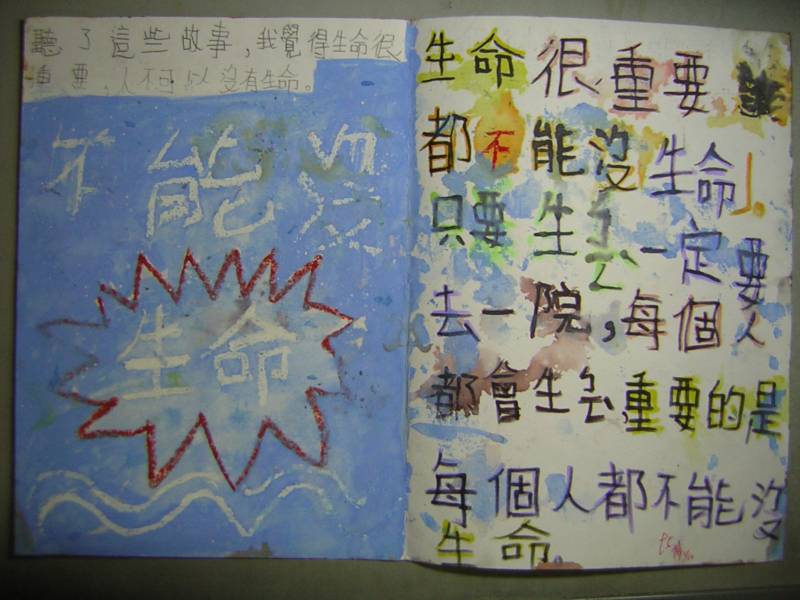 聽了這些故事,我覺得生命很
重要,人不可以沒有生命。
不能沒
生命
生命很重要
都不能沒生命。
只要生 一定要
去一院,每個人
都會生 ,重要的是
每個人都不能沒
生命。